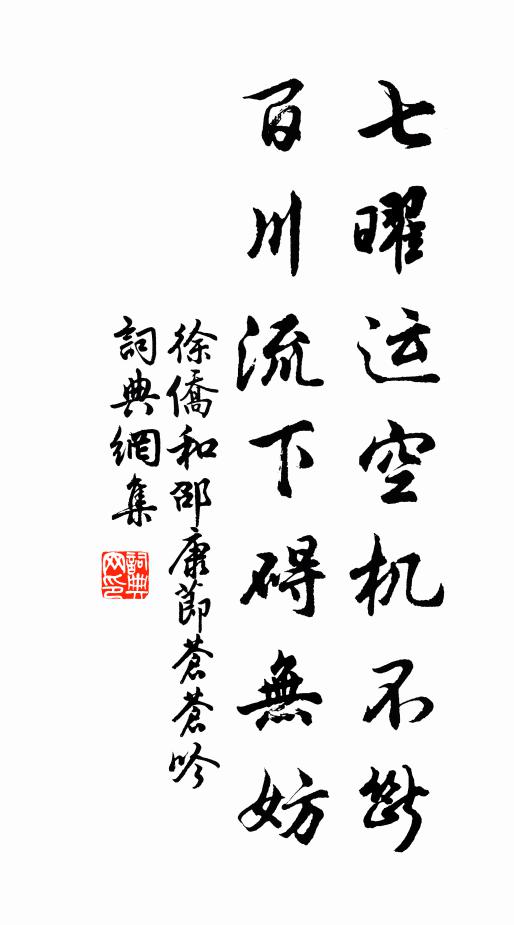 七曜运空机不断
百川流下碍無妨
徐僑和邵康節蒼蒼吟
詞典網集
詞典网印